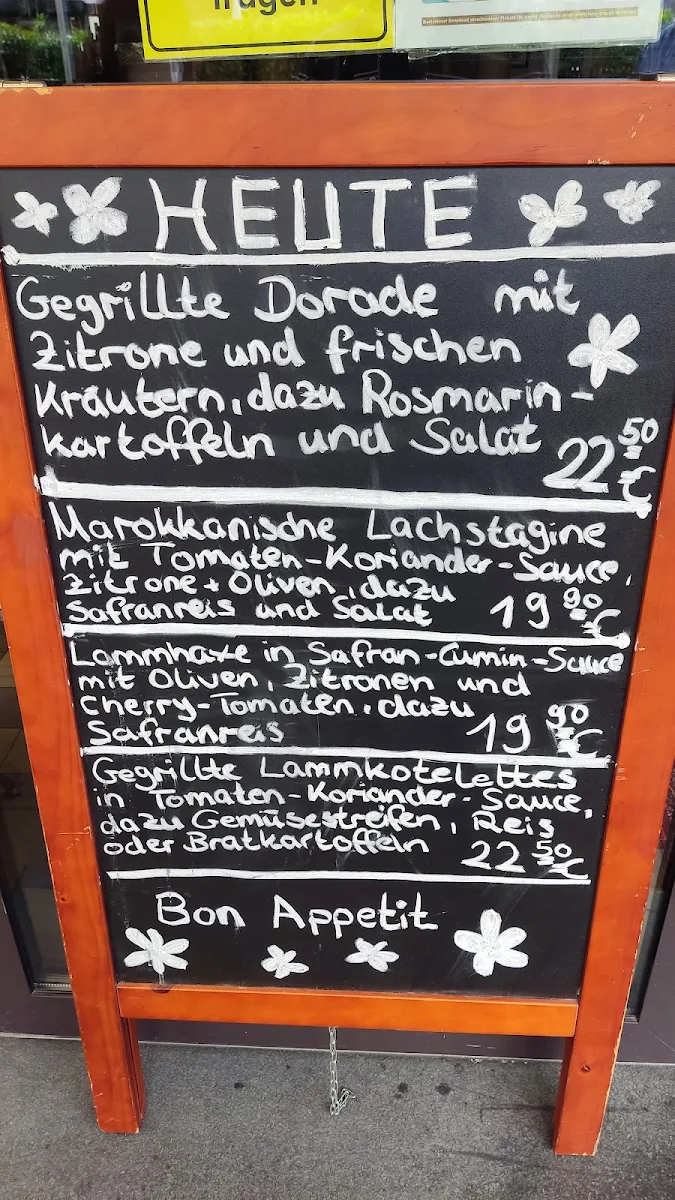 fragen
HEUTE
Gegrillte Dorade mit
Zitrone und frischen
Kräutern, dazu Rosmarin-
kartoffeln und Salat 22 50 €
Marokkanische Lachstagine
mit Tomaten-Koriander-Sauce,
Zitrone + Oliven, dazu
Safranreis und Salat 19 90 €
Lammhaxe in Safran-Cumin-Sauce
mit Oliven, Zitronen und
Cherry-Tomaten, dazu
Safranreis 19 90 €
Gegrillte Lammkotelettes
in Tomaten-Koriander-Sauce,
dazu Gemüsestreifen, Reis
oder Bratkartoffeln 22 50 €
Bon Appetit